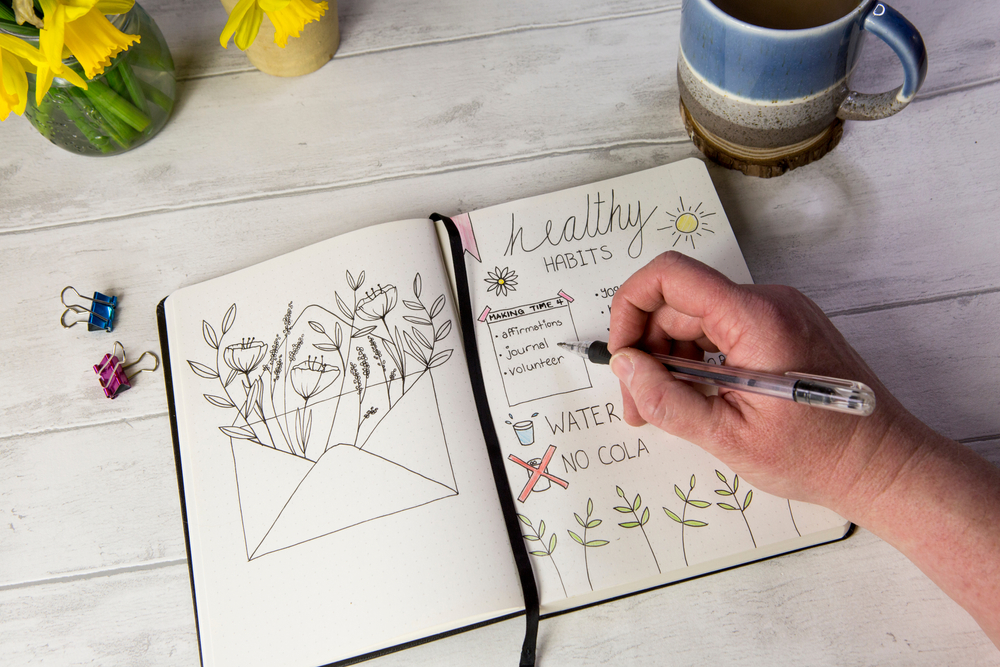 healthy
HABITS
MAKING TIME 4
• affirmations
• journal
• volunteer
WATER
NO COLA